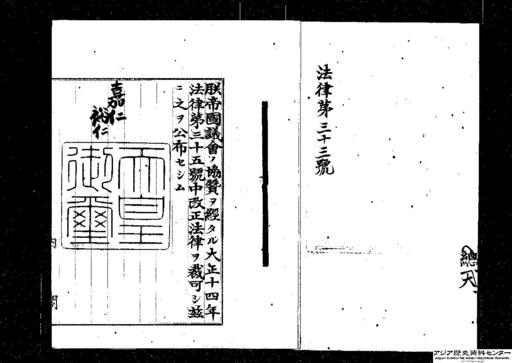 法律第三十三號
朕帝國議會ノ協賛ヲ經タル大正十四年
法律第三十五號中改正法律ヲ裁可シ茲
ニ之ヲ公布セシム
嘉仁
裕仁
天皇
御璽
内閣
アジア歴史資料センター
Japan Center for Asian Historical Records